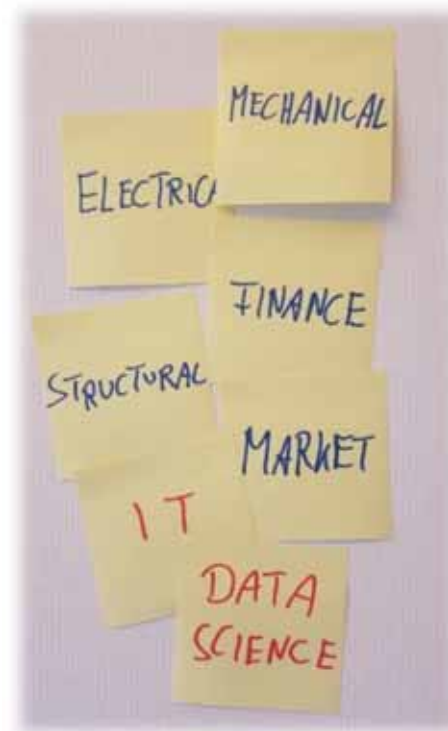 MECHANICAL
ELECTRICA
FINANCE
STRUCTURAL
MARKET
IT
DATA
SCIENCE